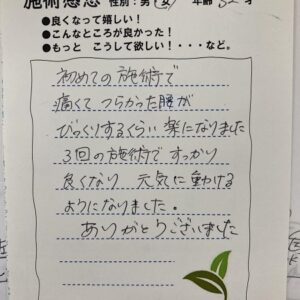 施術感想 性別:男・女 年齢 才
●良くなって嬉しい!
●こんなところが良かった!
●もっと こうして欲しい!・・・など。
初めての施術で
痛くて つらかった腰が
びっくりするくらい 楽になりました
3回の施術で すっかり
良くなり 元気に動ける
ようになりました。
ありがとうございました